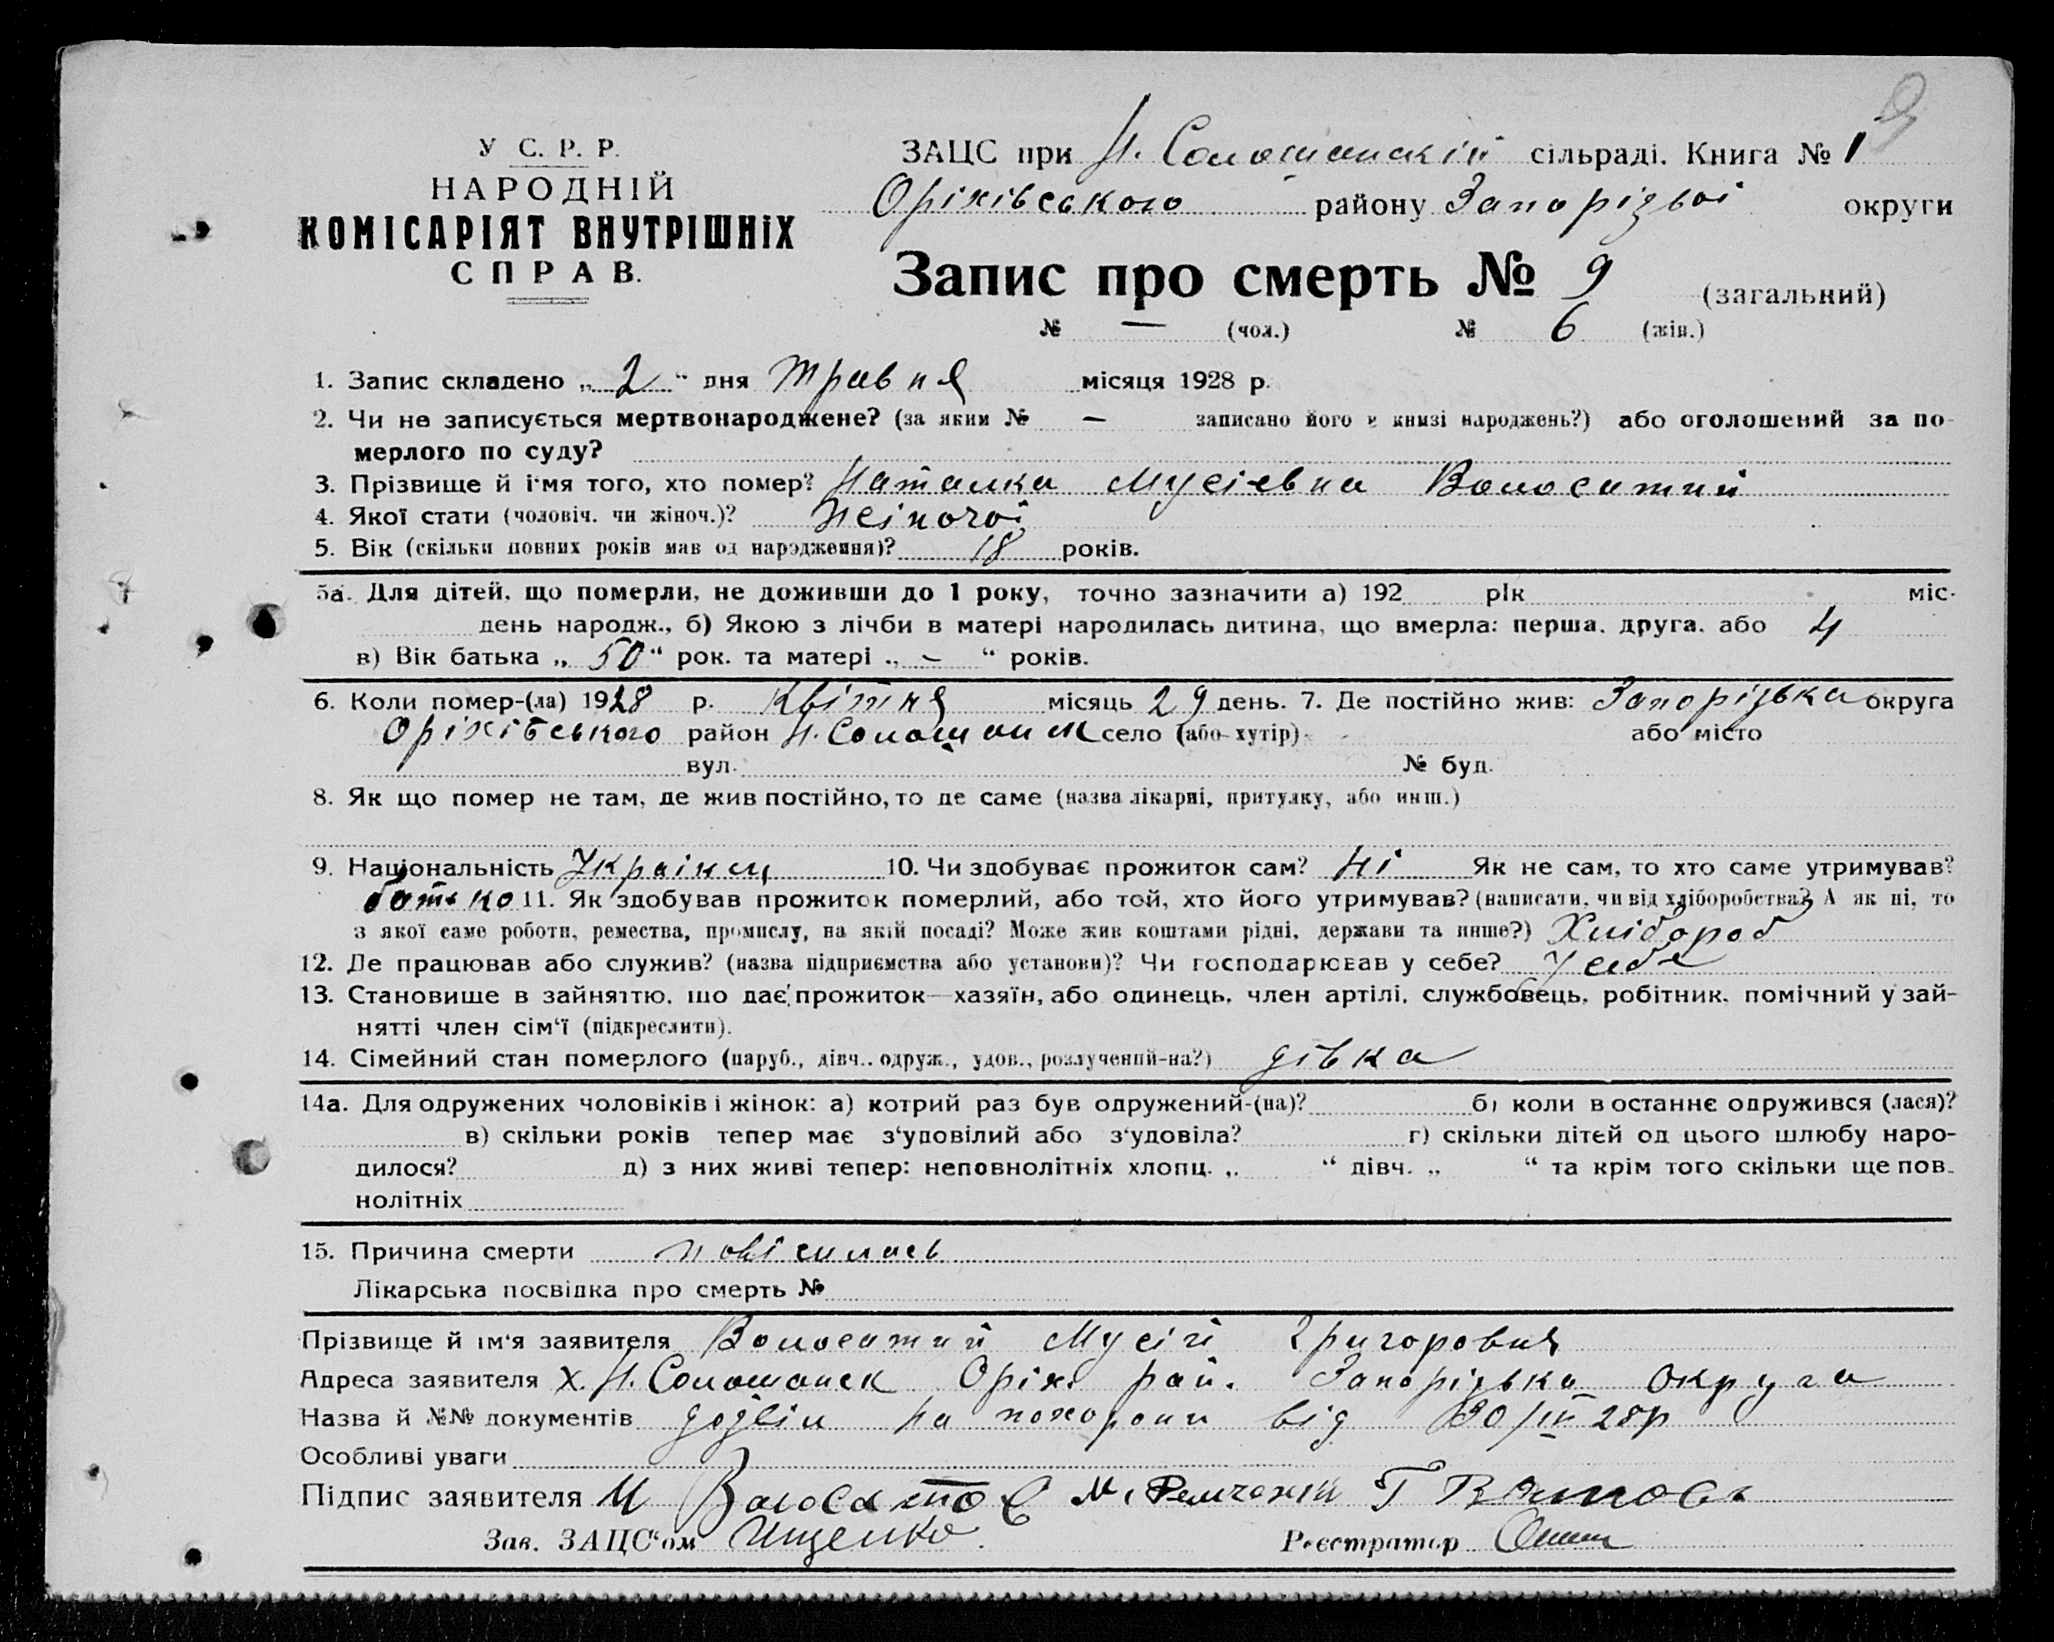 У С. Р. Р.
НАРОДНІЙ
КОМІСАРІЯТ ВНУТРІШНІХ
СПРАВ.
ЗАЦС при Н. Солошанскій сільраді. Книга № 1
9
Оріхівського району Запорізької округи
Запис про смерть № 9 (загальний)
№ — (чол.) № 6 (жін.)
1. Запис складено „ 2 “ дня травня місяця 1928 р.
2. Чи не записується мертвонароджене? (за яким № — записано його в книзі народжень?) або оголошений за по-
мерлого по суду?
3. Прізвище й і'мя того, хто помер? Наталка Мусіевна Волосатий
4. Якої статі (чоловіч. чи жіноч.)? жіночої
5. Вік (скільки повних років мав од народження)? 18 років.
5а. Для дітей, що померли, не доживши до 1 року, точно зазначити а) 192 рік міс.
день народж., б) Якою з лічби в матері народилась дитина, що вмерла: перша, друга, або 4
в) Вік батька „ 50 “ рок. та матері „ – “ років.
6. Коли помер-(ла) 1928 р. Квітня місяць 29 день. 7. Де постійно жив: Запорізька округа
Оріхівського район Н. Солошанск село (або хутір) або місто
вул. № буд.
8. Як що помер не там, де жив постійно, то де саме (назва лікарні, притулку, або инш.)
9. Національність Українц 10. Чи здобуває прожиток сам? Ні Як не сам, то хто саме утримував?
батько 11. Як здобував прожиток померлий, або той, хто його утримував? (написати, чи від хліборобства? А як ні, то
з якої саме роботи, ремества, промислу, на якій посаді? Може жив коштами рідні, держави та инше?) Хлібороб
12. Де працював або служив? (назва підприємства або установи)? Чи господарював у себе? У себе
13. Становище в зайняттю, що дає прожиток—хазяїн, або одинець, член артілі, службовець, робітник, помічний у зай-
нятті член сім'ї (підкреслити).
14. Сімейний стан померлого (паруб., дівч., одруж., удов., розлучений-на?) дівка
14а. Для одружених чоловіків і жінок: а) котрий раз був одружений-(на)? б) коли в останнє одружився (лася)?
в) скільки років тепер має з'удовілий або з'удовіла? г) скільки дітей од цього шлюбу наро-
дилося? д) з них живі тепер: неповнолітніх хлопц. „ “ дівч. „ “ та крім того скільки ще пов-
нолітніх
15. Причина смерти повісилась
Лікарська посвідка про смерть №
Прізвище й ім'я заявителя Волосатий Мусій Григоровия
Адреса заявителя х. Н. Солошанск Оріх. рай. Запорізька округа
Назва й №№ документів дозвіл на похорони від 30/IV 28р
Особливі уваги
Підпис заявителя М Волосатов М.
Зав. ЗАЦС'ом Ищенко Реєстратор